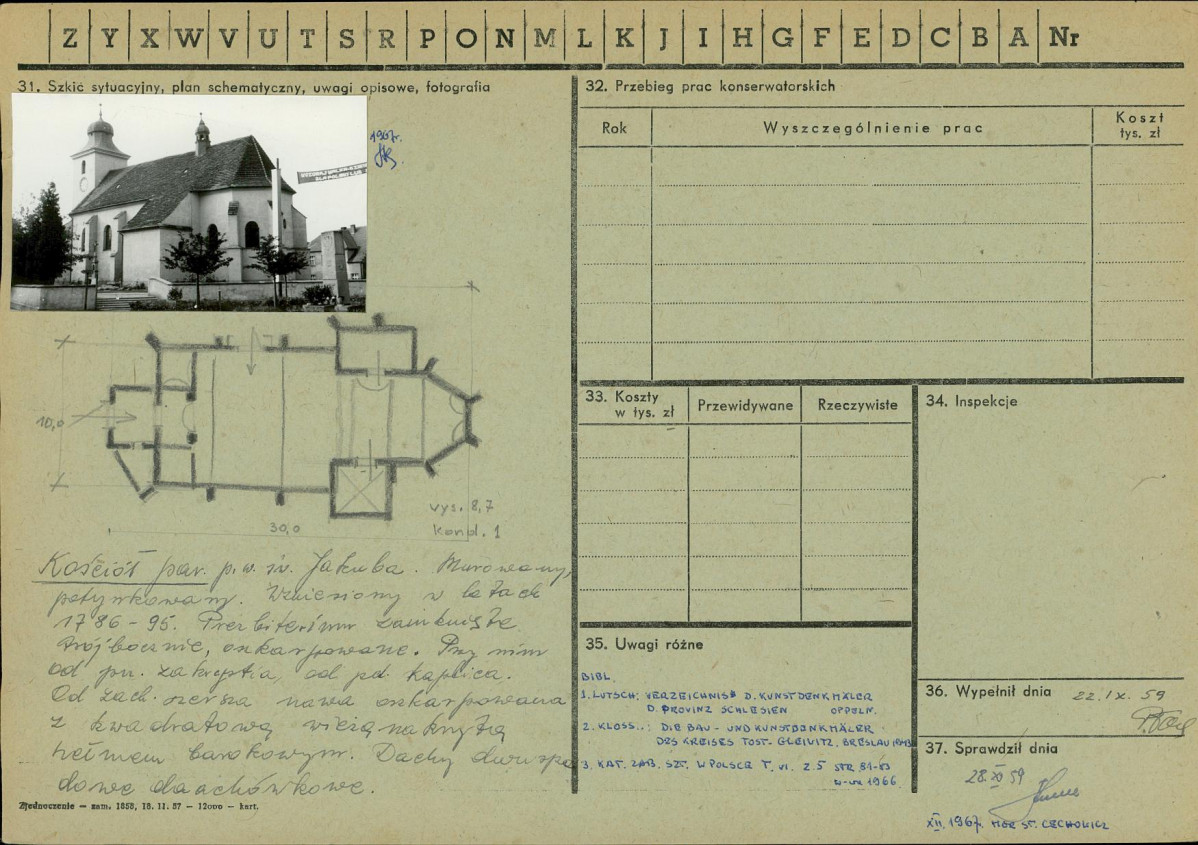 Z Y X W V U T S R P O N M L K J I H G F E D C B A Nr
31. Szkic sytuacyjny, plan schematyczny, uwagi opisowe, fotografia
1967r.
10,0
30,0
wys. 8,7
kond. 1
Kościół par. p.w. św. Jakuba. Murowany,
potynkowany. Wzniesiony w latach
1786-95. Prezbiterium zamknięte
trójbocznie, oskarpowane. Przy nim
od pn. zakrystia, od pd. kaplica.
Od zach. szersza nawa oskarpowana
z kwadratową wieżą nakrytą
hełmem barokowym. Dachy dwuspa
dowe dachówkowe.
Zjednoczenie — zam. 1858, 18. 11. 57 — 12000 — kart.
32. Przebieg prac konserwatorskich
Rok
Wyszczególnienie prac
Koszt
tys. zł
33. Koszty
w tys. zł
Przewidywane
Rzeczywiste
34. Inspekcje
35. Uwagi różne
BIBL.
1. LUTSCH; VERZEICHNIS D. KUNSTDENKMÄLER
D. PROVINZ SCHLESIEN OPPELN.
2. KLOSS..: DIE BAU- UND KUNSTDENKMÄLER
DES KREISES TOST-GLEIVITZ, BRESLAU
3. KAT. ZAB. SZT. W POLSCE T. VI. Z.5 STR 81-83
1966.
36. Wypełnił dnia 22.IX.59
37. Sprawdził dnia
28 XI 59
XII. 1967r. MGR ST. CECHOWICZ